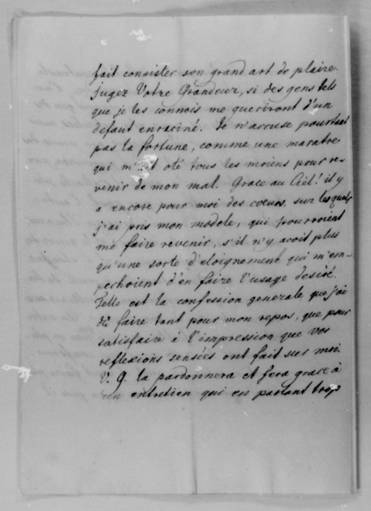 fait consister son grand art de plaire.
Jugez Votre Grandeur, si des gens tels
que je les connois me queriront d'un
defaut enraciné. Je n'accuse pourtant
pas la fortune, comme une maratre
qui m'ait oté tous les moiens pour re-
venir de mon mal. Grace au Ciel! il y
a encore pour moi des coeurs, sur lesquels
j'ai pris mon modele, qui pourroient
me faire revenir, s'il n'y avoit plus
qu'une sorte d'eloignement qui m'em-
pechoient d'en faire l'usage desiré.
Telle est la confession generale que j'ai
faire tant pour mon repos, que pour
satisfaire à l'impression que vos
reflexions sensées ont fait sur moi.
V. G. la pardonnera et fera grace à
un entretien qui en parlant trop